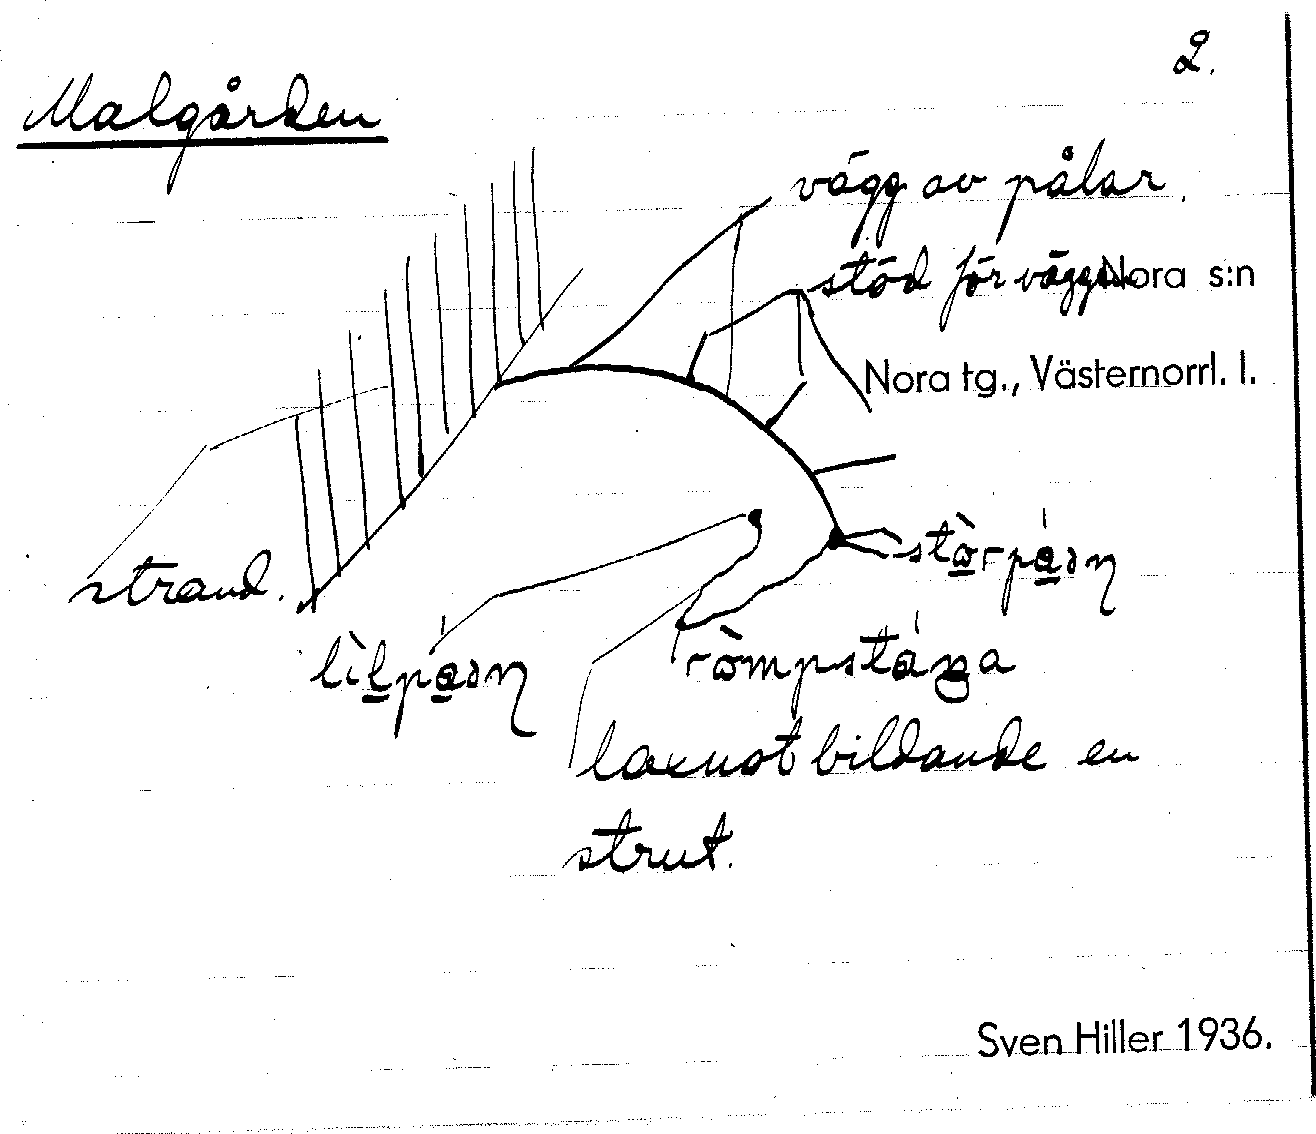 2.
Malgården
vägg av pålar
stöd för väggen
Nora s:n
Nora tg., Västernorrl. l.
strand.
laxnot bildande en
strut.
Sven Hiller 1936.